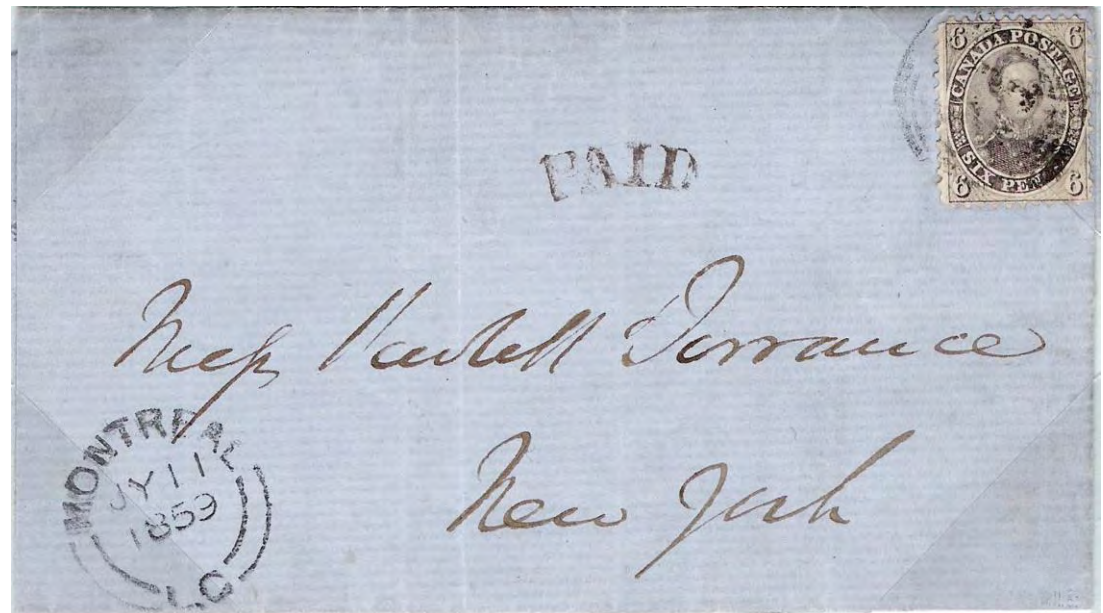 6 CANADA POSTAGE 6
6 SIX PEN 6
PAID
Torrance
New York
MONTREAL
JY 11
1859
L.C